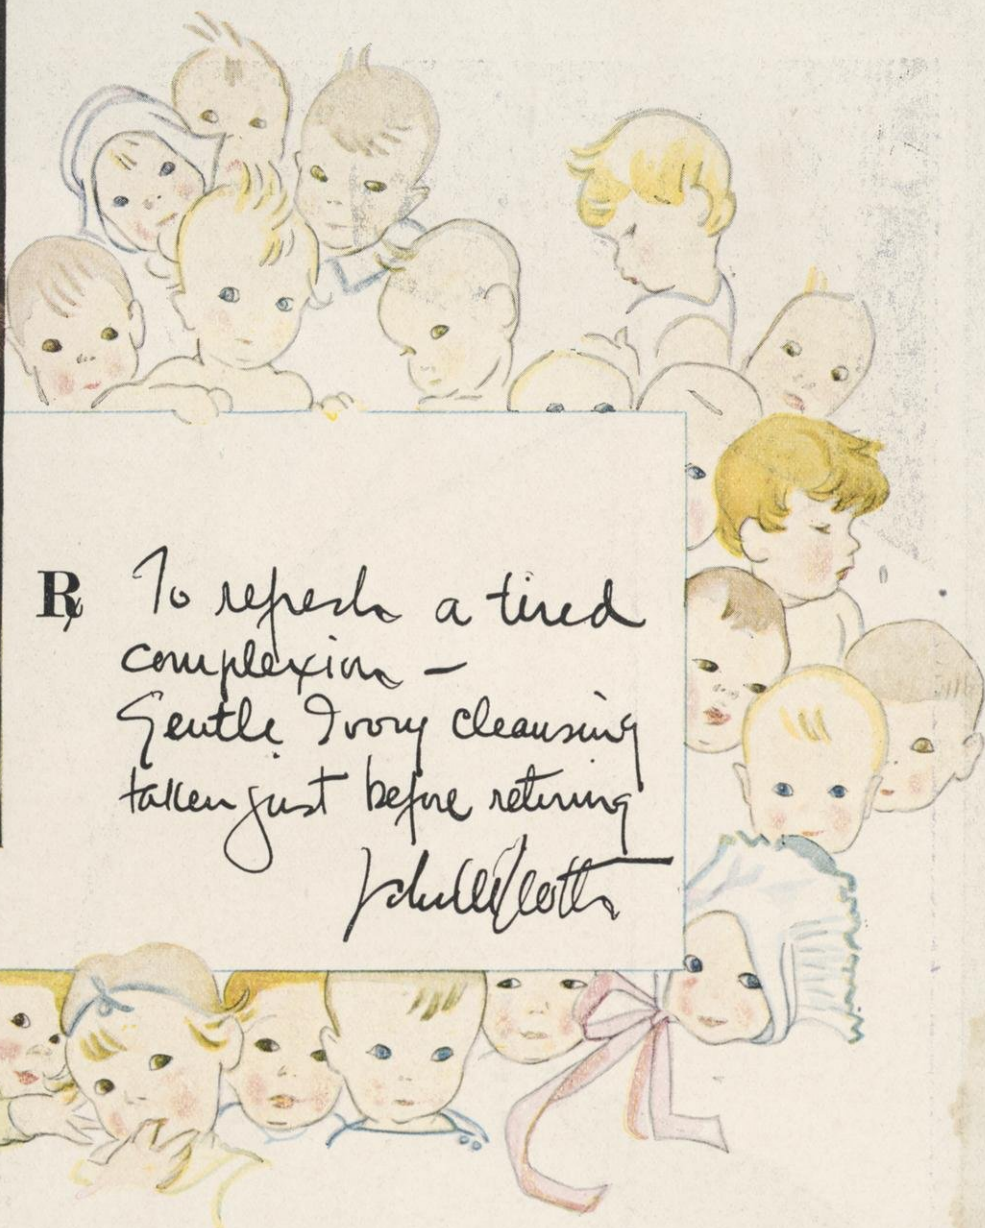 ℞ To refresh a tired
complexion –
Gentle Ivory cleansing
taken just before retiring